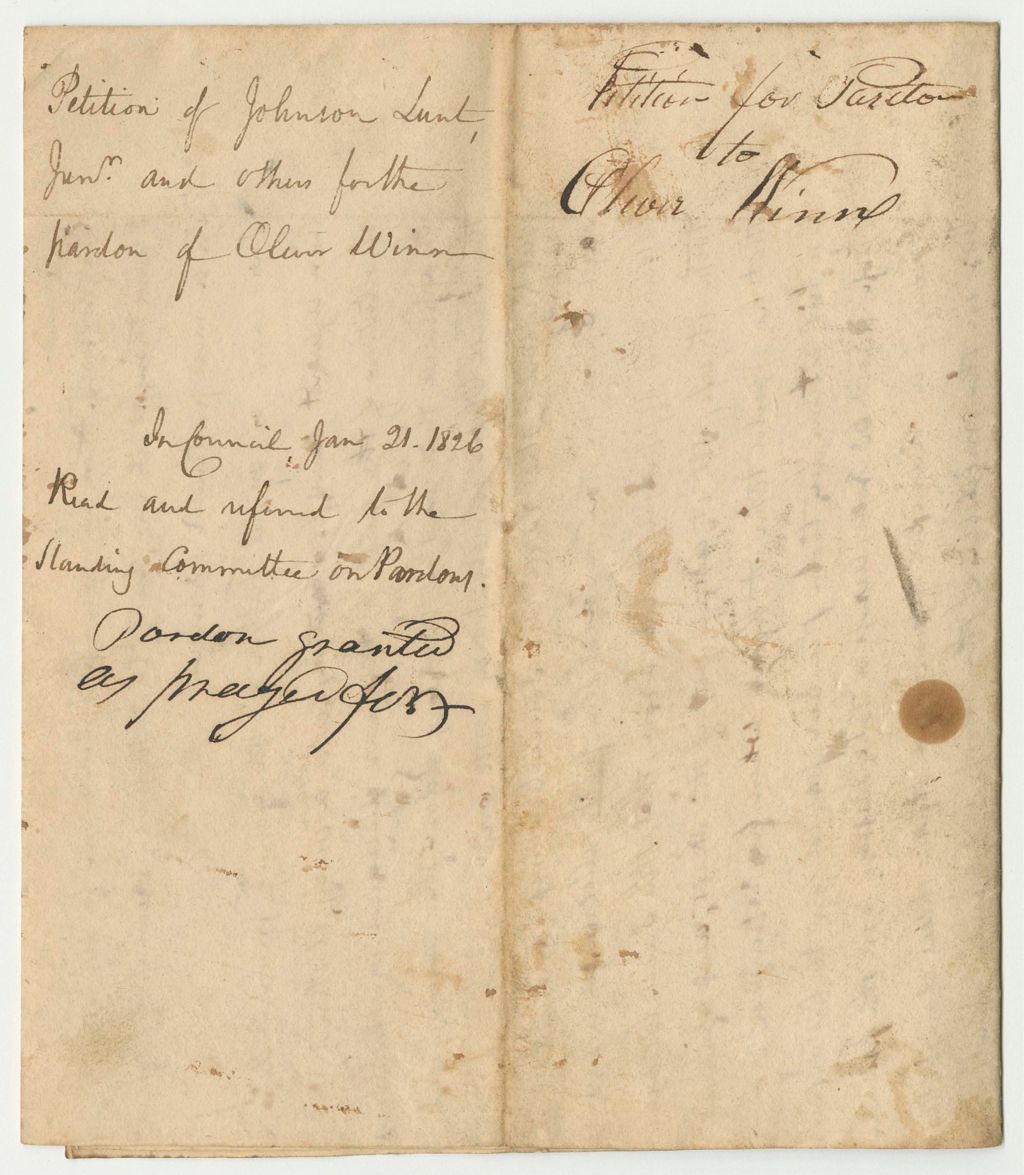 Petition of Johnson Lunt,
Junr. and others for the
pardon of Oliver Winn
In Council, Jan 21. 1826
Read and referred to the
Standing Committee on Pardons.
Pardon granted
as prayed for
Petition for Pardon
to
Oliver Winn